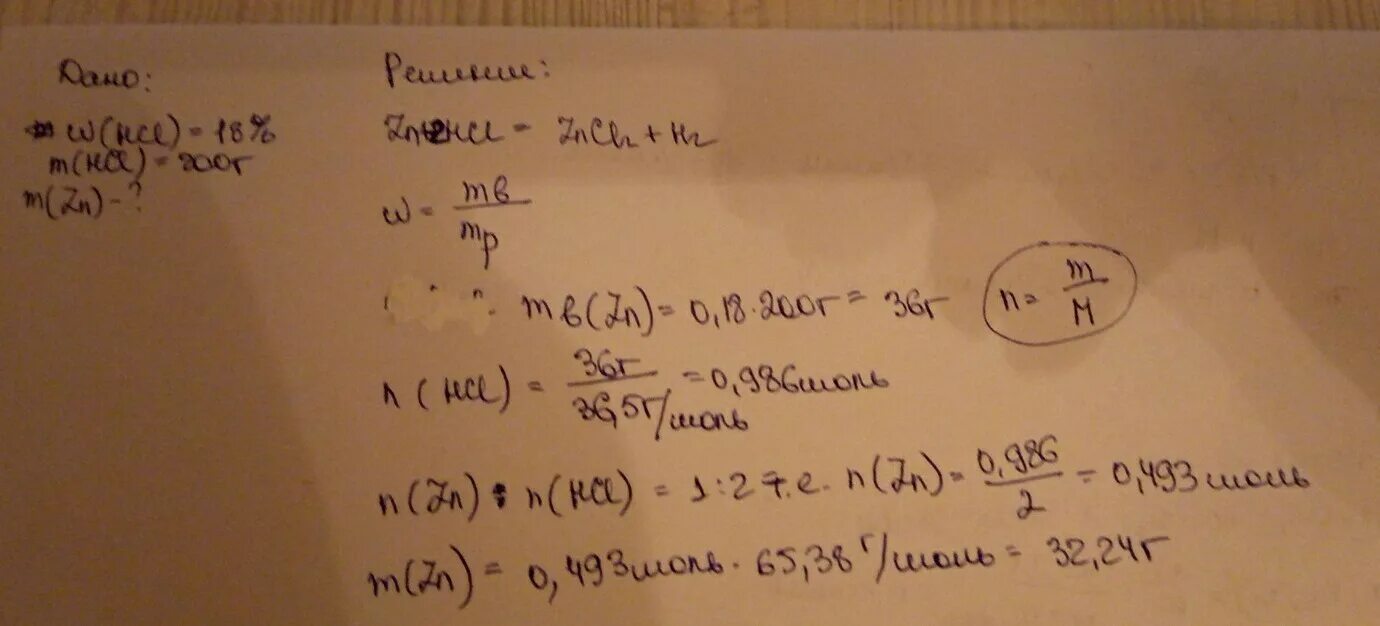 Дано:
w(HCl) = 18%
m(HCl) = 200г
m(Zn) - ?
Решение:
Zn+2HCl = ZnCl₂ + H₂
w = mв/mр
mв(Zn) = 0,18·200г = 36г
n = m/M
n(HCl) = 36г/36,5г/моль = 0,986моль
n(Zn) : n(HCl) = 1:2 т.е. n(Zn) = 0,986/2 = 0,493моль
m(Zn) = 0,493моль · 65,38 г/моль = 32,24г